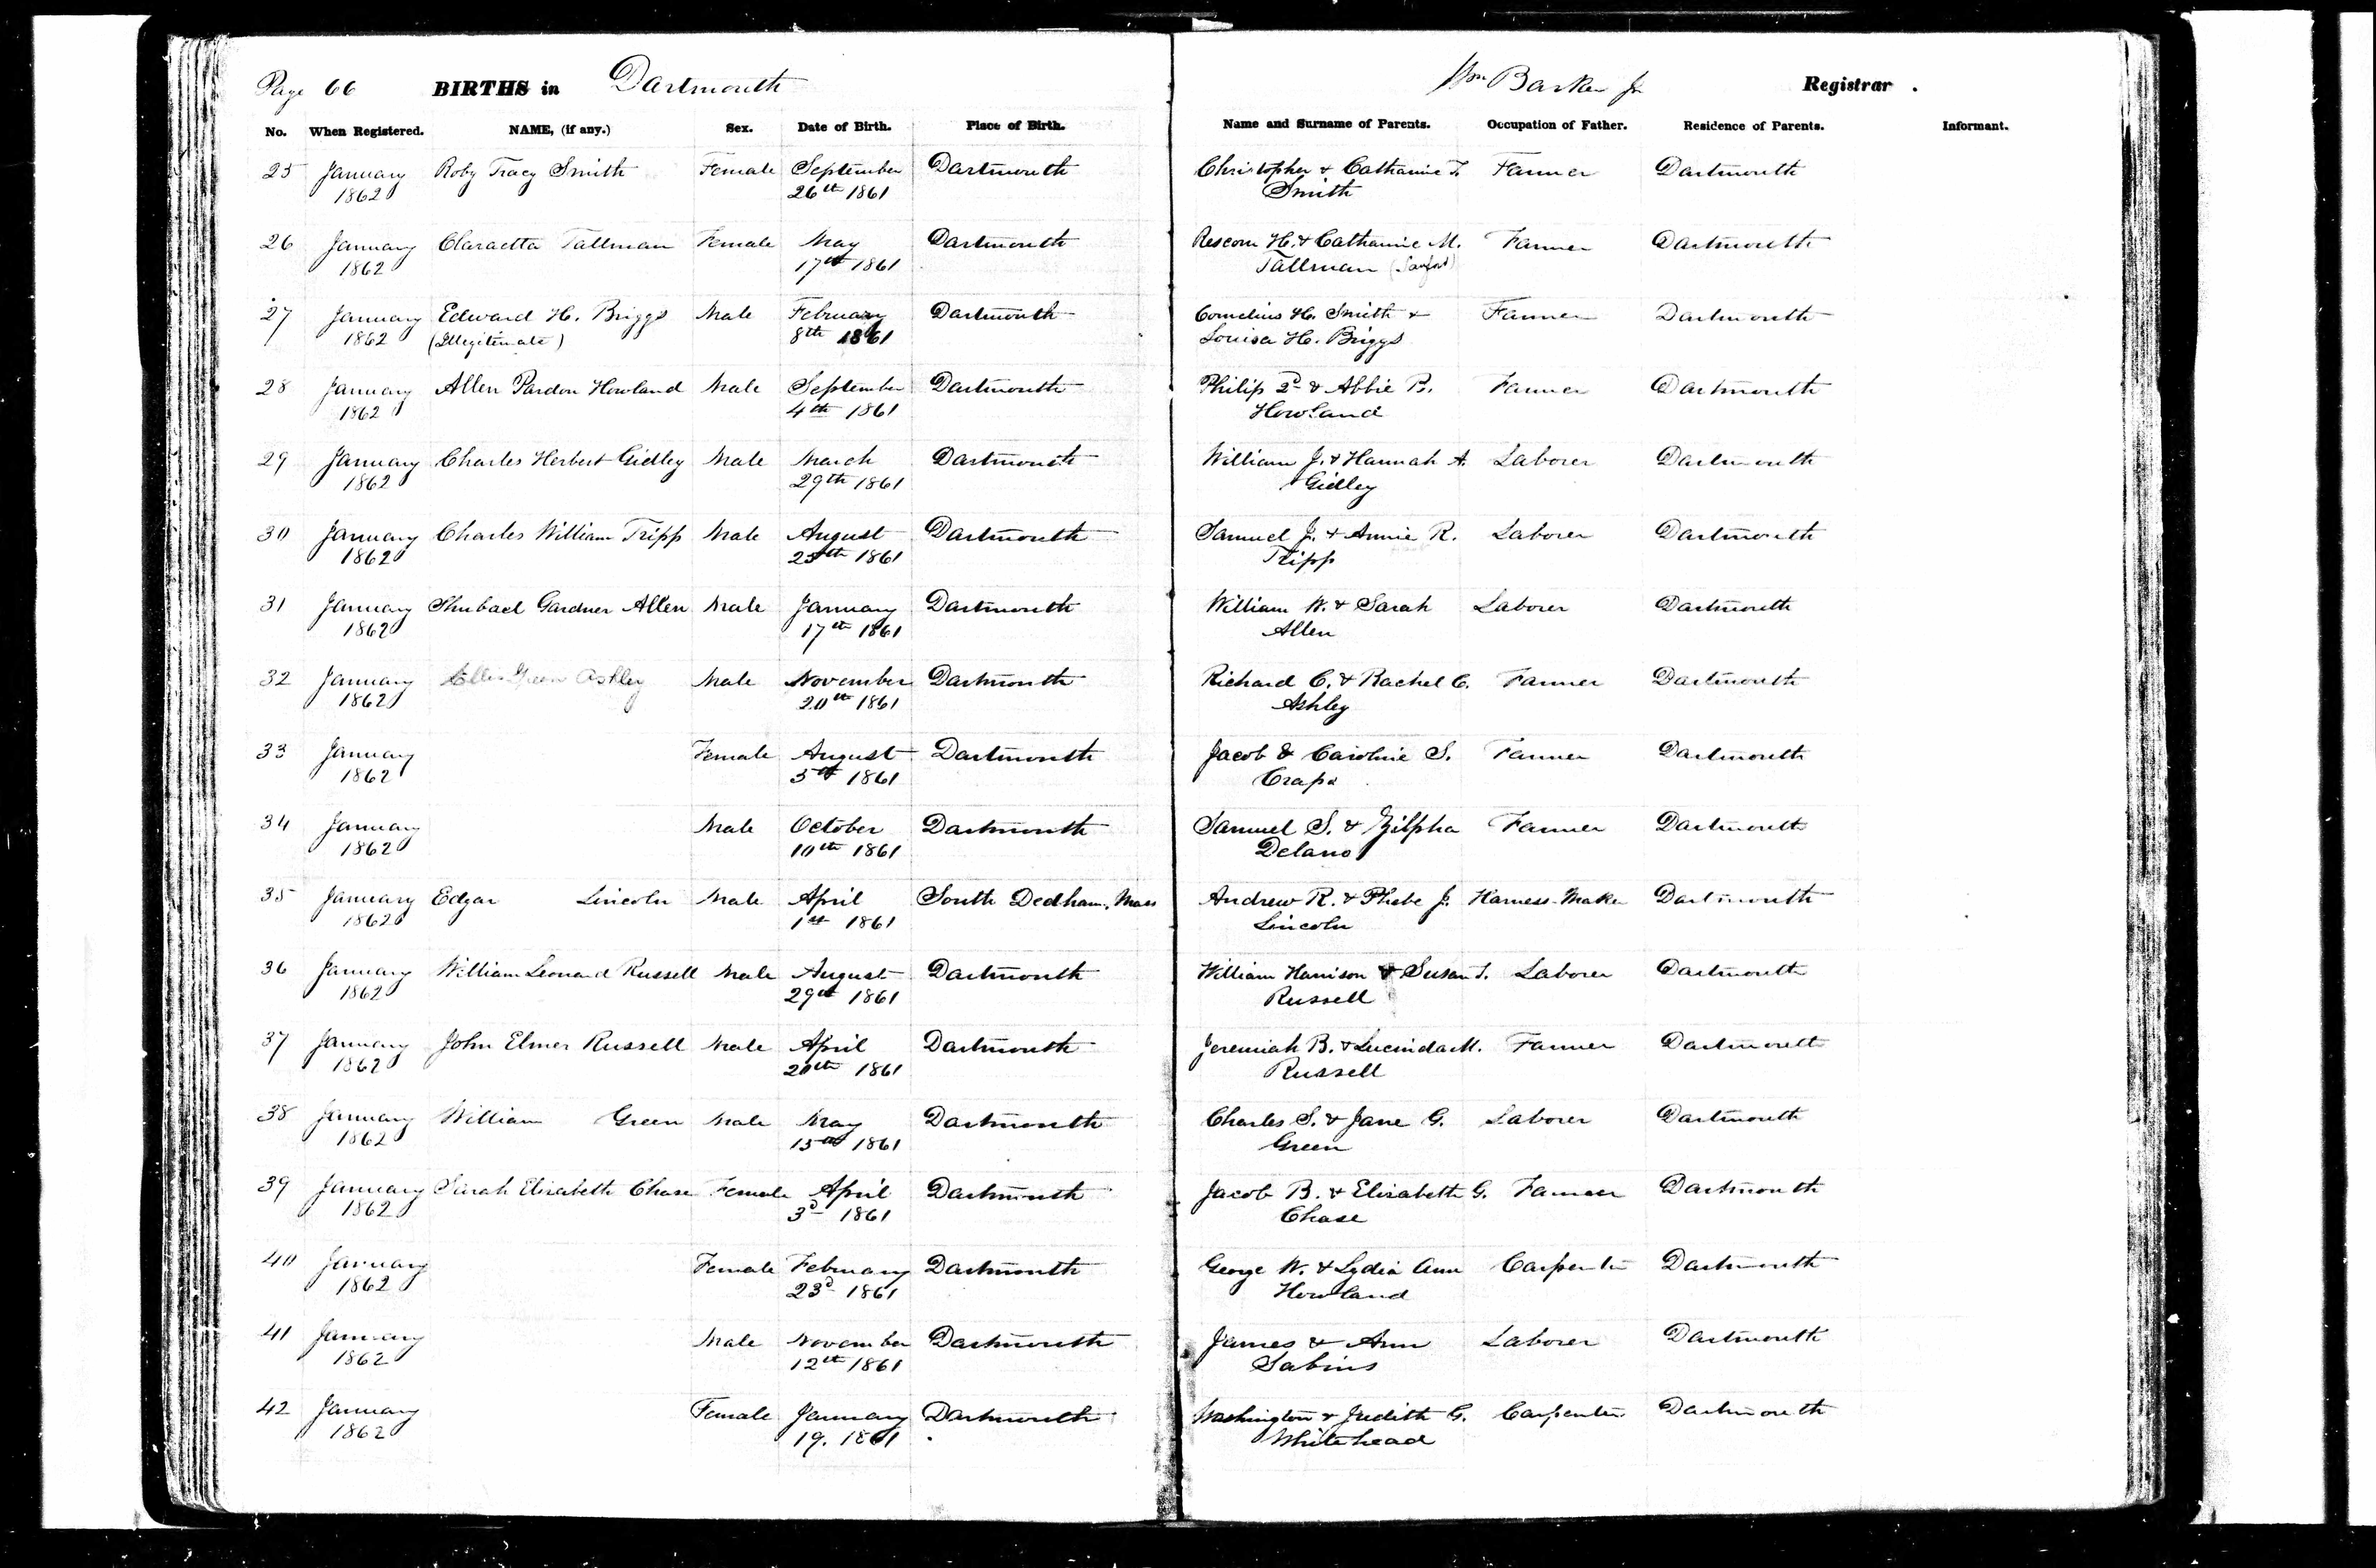 Page 66 BIRTHS in Dartmouth Wm Barker Jr Registrar.
No. When Registered. NAME, (if any.) Sex. Date of Birth. Place of Birth. Name and Surname of Parents. Occupation of Father. Residence of Parents. Informant.
25 January Roby Tracy Smith Female September Dartmouth Christopher & Catharine T. Farmer Dartmouth
1862 26th 1861 Smith
26 January Claraetta Tallman Female May Dartmouth Rescom H. & Catharine M. Farmer Dartmouth
1862 17th 1861 Tallman (Sanford)
27 January Edward H. Briggs Male February Dartmouth Cornelius H. Smith & Farmer Dartmouth
1862 (Illegitimate) 8th 1861 Louisa H. Briggs
28 January Allen Pardon Howland Male September Dartmouth Philip 2d & Abbie B. Farmer Dartmouth
1862 4th 1861 Howland
29 January Charles Herbert Gidley Male March Dartmouth William J. & Hannah A. Laborer Dartmouth
1862 29th 1861 Gidley
30 January Charles William Tripp Male August Dartmouth Samuel J. & Annie R. Laborer Dartmouth
1862 25th 1861 Tripp
31 January Shubael Gardner Allen Male January Dartmouth William W. & Sarah Laborer Dartmouth
1862 17th 1861 Allen
32 January Green Ashley Male November Dartmouth Richard C. & Rachel C. Farmer Dartmouth
1862 20th 1861 Ashley
33 January Female August Dartmouth Jacob & Caroline S. Farmer Dartmouth
1862 5th 1861 Crapo
34 January Male October Dartmouth Samuel S. & Zilpha Farmer Dartmouth
1862 10th 1861 Delano
35 January Edgar Lincoln Male April South Dedham, Mass Andrew R. & Phebe J. Harness-Maker Dartmouth
1862 1st 1861 Lincoln
36 January William Leonard Russell Male August Dartmouth William Harrison & Susan T. Laborer Dartmouth
1862 29th 1861 Russell
37 January John Elmer Russell Male April Dartmouth Jeremiah B. & Lucinda M. Farmer Dartmouth
1862 20th 1861 Russell
38 January William Green Male May Dartmouth Charles S. & Jane G. Laborer Dartmouth
1862 15th 1861 Green
39 January Sarah Elisabeth Chase Female April Dartmouth Jacob B. & Elisabeth G. Farmer Dartmouth
1862 3d 1861 Chase
40 January Female February Dartmouth George W. & Lydia Ann Carpenter Dartmouth
1862 23d 1861 Howland
41 January Male November Dartmouth James & Ann Laborer Dartmouth
1862 12th 1861 Sabins
42 January Female January Dartmouth Washington & Judith G. Carpenter Dartmouth
1862 19. 1861 Whitehead